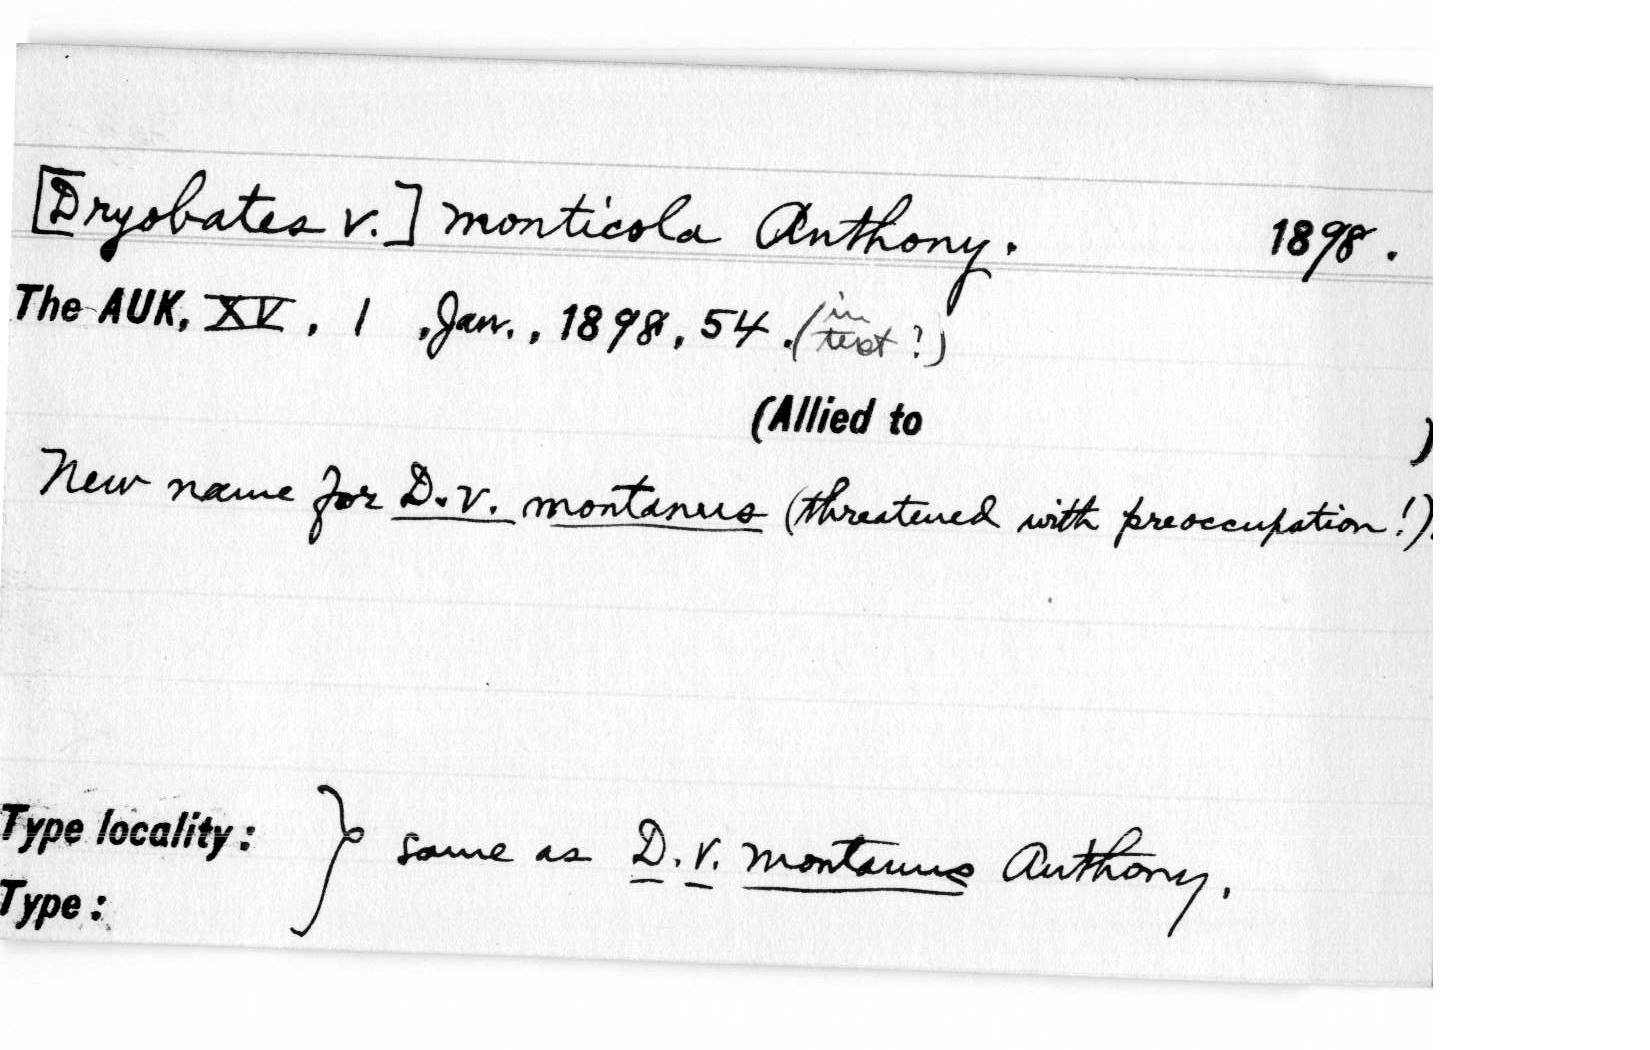 [Dryobates v.] monticola Anthony. 1898.
The AUK, XV, 1, Jan., 1898, 54. (in text?)
(Allied to )
New name for D. v. montanus (threatened with preoccupation!).
Type locality: } same as D. v. montanus Anthony.
Type: